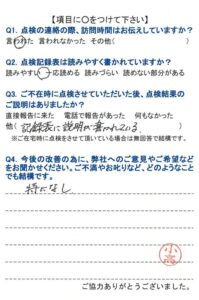 【項目に○をつけて下さい】
Q1. 点検の連絡の際、訪問時間はお伝えしていますか？
言われた 言われなかった その他( )
Q2. 点検記録表は読みやすく書かれていますか？
読みやすい 一応読める 読みづらい 読めない部分がある
Q3. ご不在時に点検させていただいた後、点検結果の
ご説明はありましたか？
直接報告に来た 電話で報告があった 何もなかった
他( 記録表に説明が書かれている )
※ご在宅時に点検をさせて頂いている場合は無回答で結構です。
Q4. 今後の改善の為に、弊社へのご意見やご希望など
をお聞かせください。ご不満やお叱りなど、どのようなこと
でも結構です。
特になし
小高
ご協力ありがとうございました。